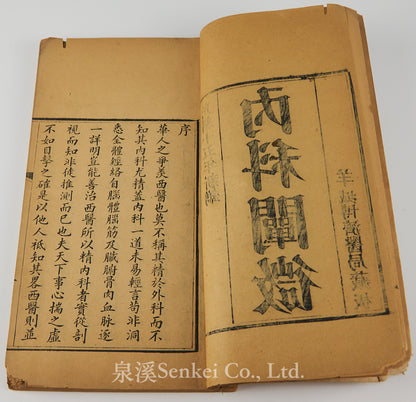 內科闡微
羊城博濟醫局藏板
序
華人之爭羨西醫也莫不稱其精於外科而不
知其內科尤精蓋內科一道未易輕言苟非洞
悉全體經絡自腦體腦筋及臟腑骨肉血脈逐
一詳明豈能善治西醫所以精內科者實從剖
視而知非徒推測而已也夫天下事心揣之虛
不如目擊之確是以他人祇知其畧西醫則並
泉溪Senkei Co., Ltd.